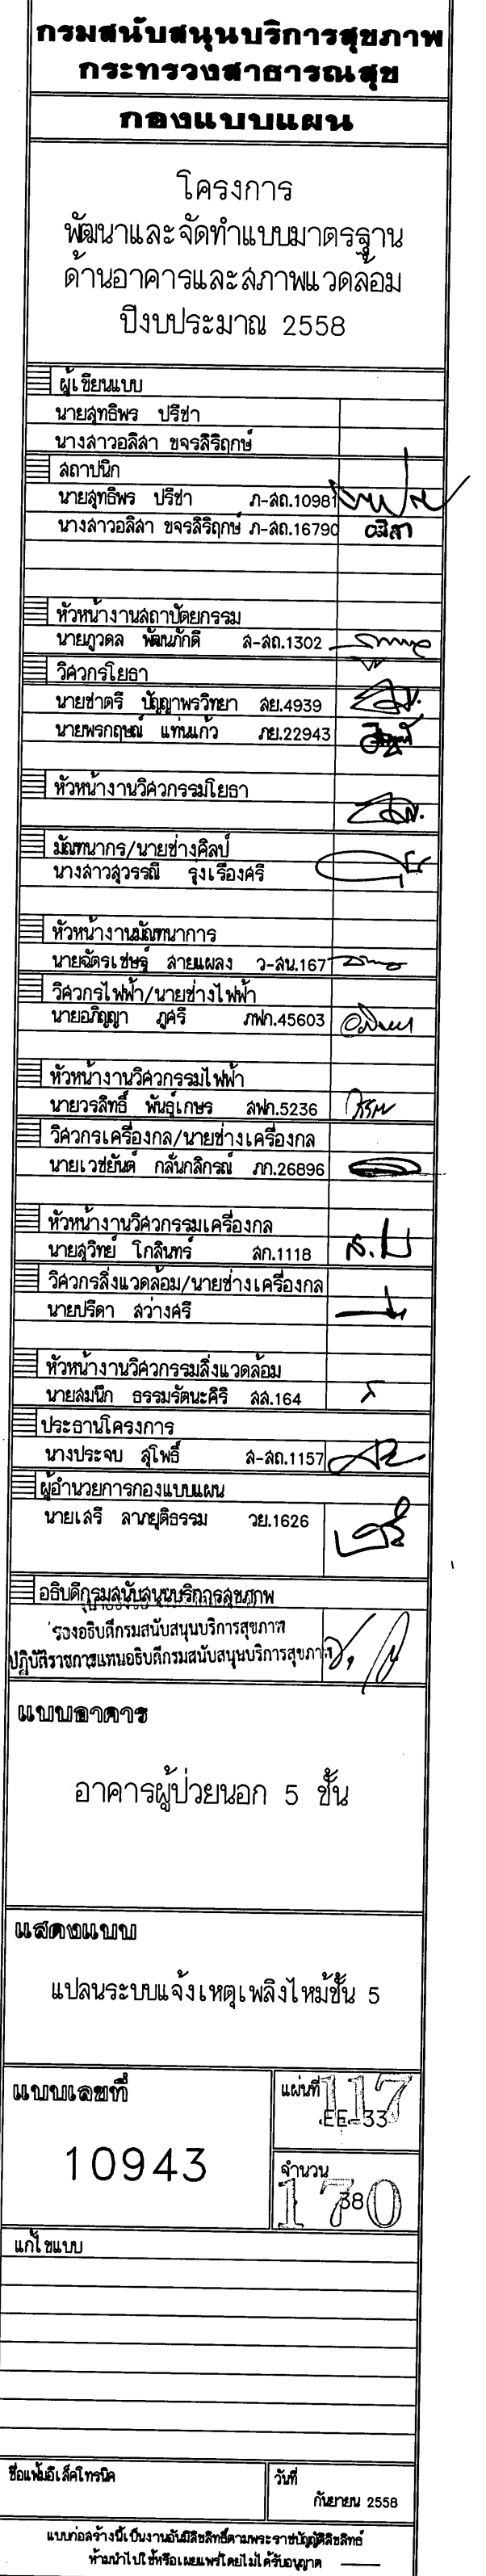 กรมสนับสนุนบริการสุขภาพ
กระทรวงสาธารณสุข
กองแบบแผน
โครงการ
พัฒนาและจัดทำแบบมาตรฐาน
ด้านอาคารและสภาพแวดล้อม
ปีงบประมาณ 2558
ผู้เขียนแบบ
นายสุทธิพร ปรีชา
นางสาวอลิสา ขจรสิริฤกษ์
สถาปนิก
นายสุทธิพร ปรีชา ภ-สถ.10981
นางสาวอลิสา ขจรสิริฤกษ์ ภ-สถ.16790
อลิสา
หัวหน้างานสถาปัตยกรรม
นายภูวดล พัฒนภักดี ส-สถ.1302
วิศวกรโยธา
นายชาตรี ปัญญาพรวิทยา สย.4939
นายพรกฤษณ์ แท่นแก้ว ภย.22943
หัวหน้างานวิศวกรรมโยธา
มัณฑนากร/นายช่างศิลป์
นางสาวสุวรรณี รุงเรืองศรี
หัวหน้างานมัณฑนาการ
นายฉัตรเชษฐ์ สายแผลง ว-สน.167
วิศวกรไฟฟ้า/นายช่างไฟฟ้า
นายอภิญญา ภูศรี ภฟก.45603
หัวหน้างานวิศวกรรมไฟฟ้า
นายวรสิทธิ์ พันธุ์เกษร สฟก.5236
วิศวกรเครื่องกล/นายช่างเครื่องกล
นายเวชยันต์ กลั่นกสิกรณ์ ภก.26896
หัวหน้างานวิศวกรรมเครื่องกล
นายสุวิทย์ โกสินทร์ สก.1118
วิศวกรสิ่งแวดล้อม/นายช่างเครื่องกล
นายปรีดา สว่างศรี
หัวหน้างานวิศวกรรมสิ่งแวดล้อม
นายสมนึก ธรรมรัตนะคิริ สส.164
ประธานโครงการ
นางประจบ สุโพธิ์ ส-สถ.1157
ผู้อำนวยการกองแบบแผน
นายเสรี ลาภยุติธรรม วย.1626
อธิบดีกรมสนับสนุนบริการสุขภาพ
รองอธิบดีกรมสนับสนุนบริการสุขภาพ
ปฏิบัติราชการแทนอธิบดีกรมสนับสนุนบริการสุขภาพ
แบบอาคาร
อาคารผู้ป่วยนอก 5 ชั้น
แสดงแบบ
แปลนระบบแจ้งเหตุเพลิงไหม้ชั้น 5
แบบเลขที่
10943
แผ่นที่ 117
EE-33
จำนวน
38
170
แก้ไขแบบ
ชื่อแฟ้มอิเล็คโทรนิค
วันที่
กันยายน 2558
แบบก่อสร้างนี้เป็นงานอันมีลิขสิทธิ์ตามพระราชบัญญัติลิขสิทธ์
ห้ามนำไปใช้หรือเผยแพร่โดยไม่ได้รับอนุญาต